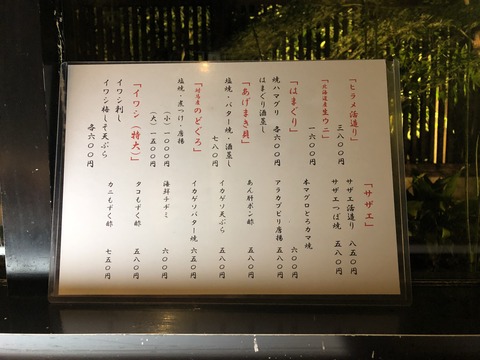 「ヒラメ活造り」
三八〇〇円
「北海道産生ウニ」
一六〇〇円
「はまぐり」
焼ハマグリ 各六〇〇円
はまぐり酒蒸し
「あげまき貝」
塩焼・バター焼・酒蒸し
七八〇円
「対馬産のどぐろ」
塩焼・煮つけ・唐揚
(小)一〇〇〇円
(大)一五〇〇円
「イワシ(特大)」
イワシ刺し
イワシ梅しそ天ぷら
各六〇〇円
「サザエ」
サザエ活造り 八五〇円
サザエつぼ焼 五八〇円
本マグロとろカマ焼 六〇〇円
アラカブピリ唐揚 五八〇円
あん肝ポン酢 五八〇円
イカゲソ天ぷら 五八〇円
イカゲソバター焼 六五〇円
海鮮チヂミ 六〇〇円
タコもずく酢 五八〇円
カニもずく酢 七五〇円